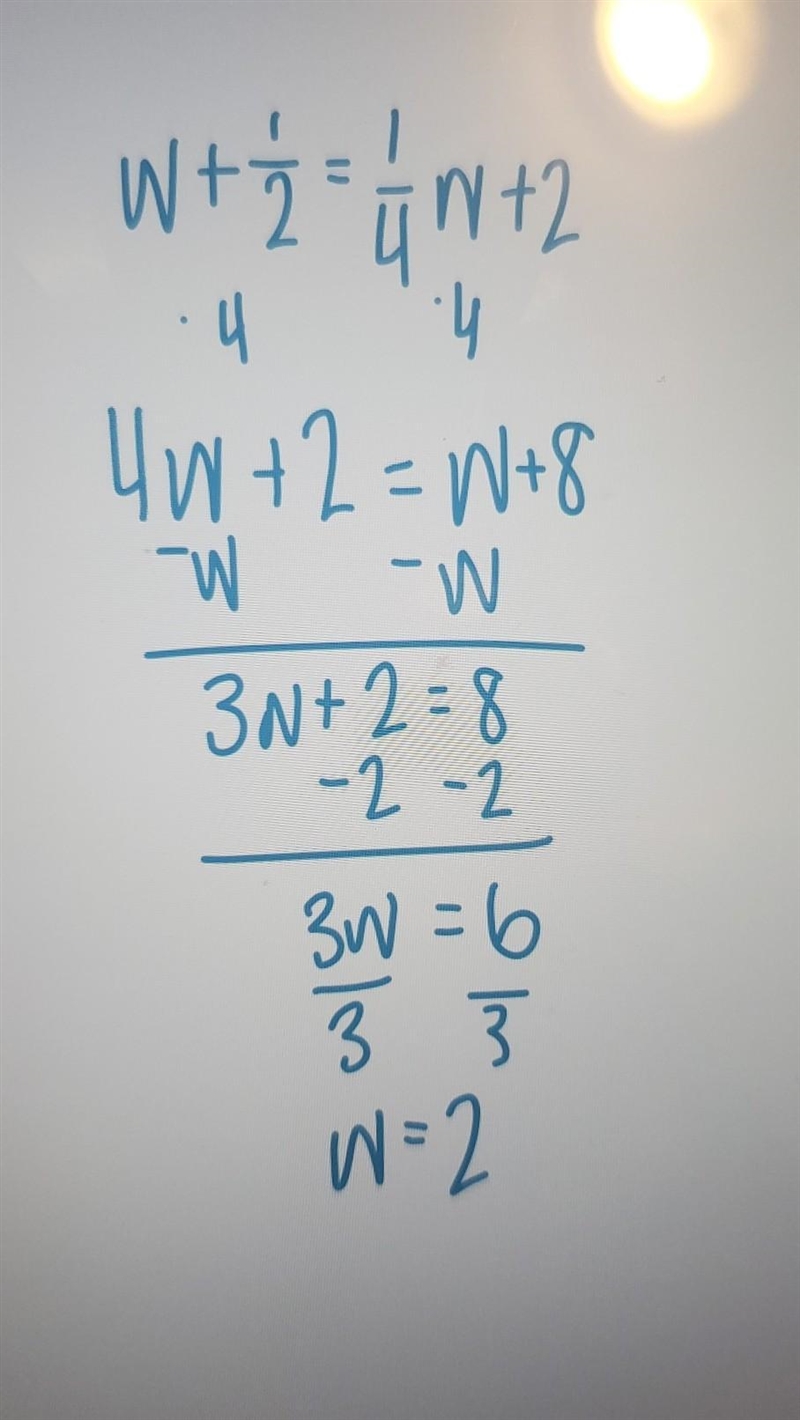 W + 1/2 = 1/4 W + 2
· 4 · 4
4W + 2 = W + 8
-W -W
3W + 2 = 8
-2 -2
3W/3 = 6/3
W = 2